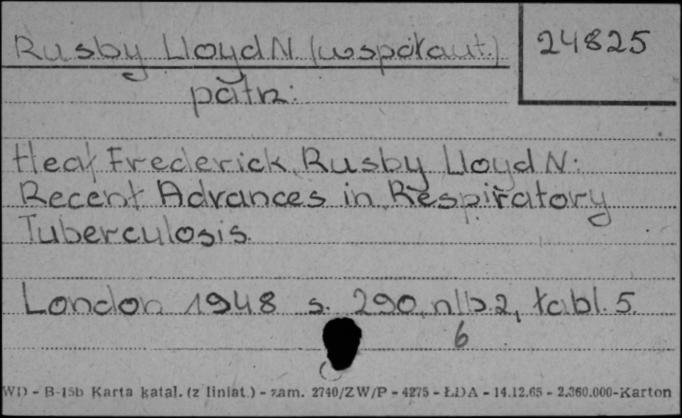 Rusby Lloyd N. (współaut.)
24825
patrz:
Heaf Frederick, Rusby Lloyd N:
Recent Advances in Respiratory
Tuberculosis.
London 1948 s. 290, nlb. 2, tabl. 5.
6
WD - B-15b Karta katal. (z liniat.) - zam. 2740/ZW/P - 4275 - ŁDA - 14.12.65 - 2.360.000-Karton